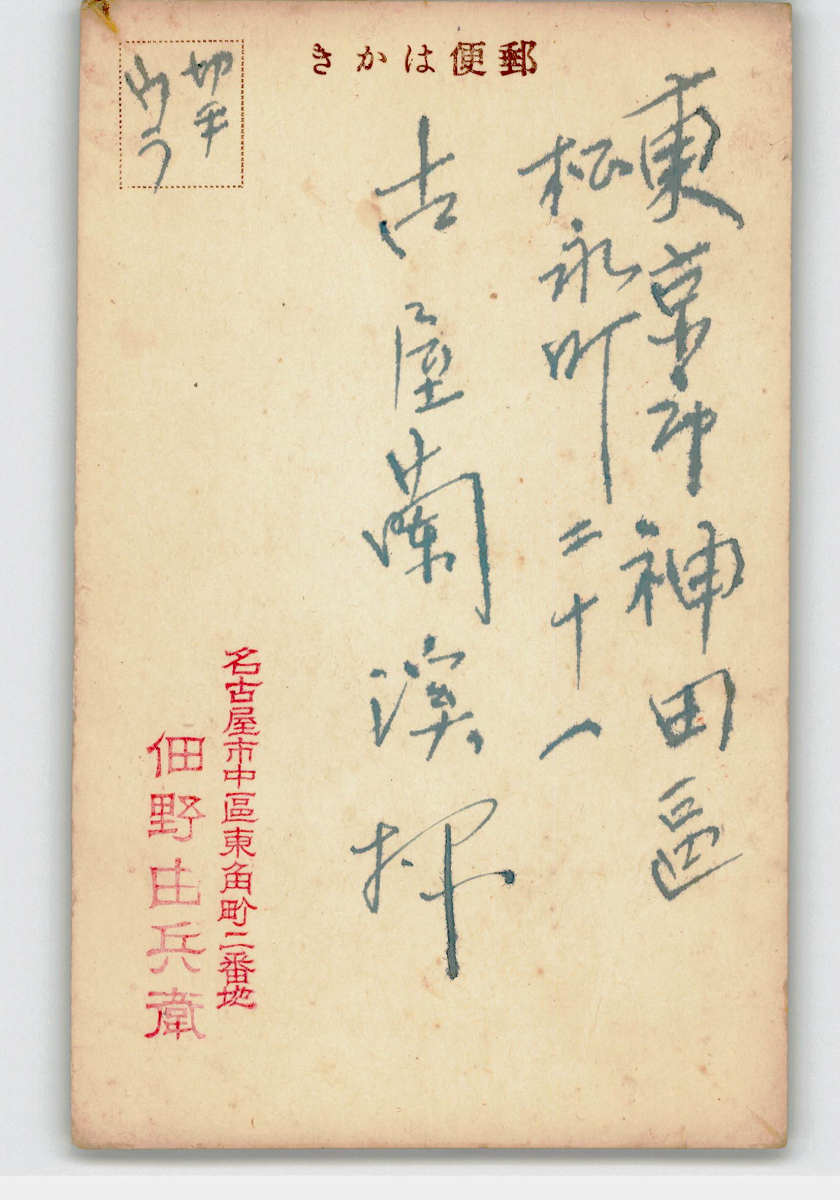 郵便はかき
東京市神田區
松永町二十一
古屋蘭溪
切手
ウラ
名古屋市中區東角町二番地
佃野由兵衛